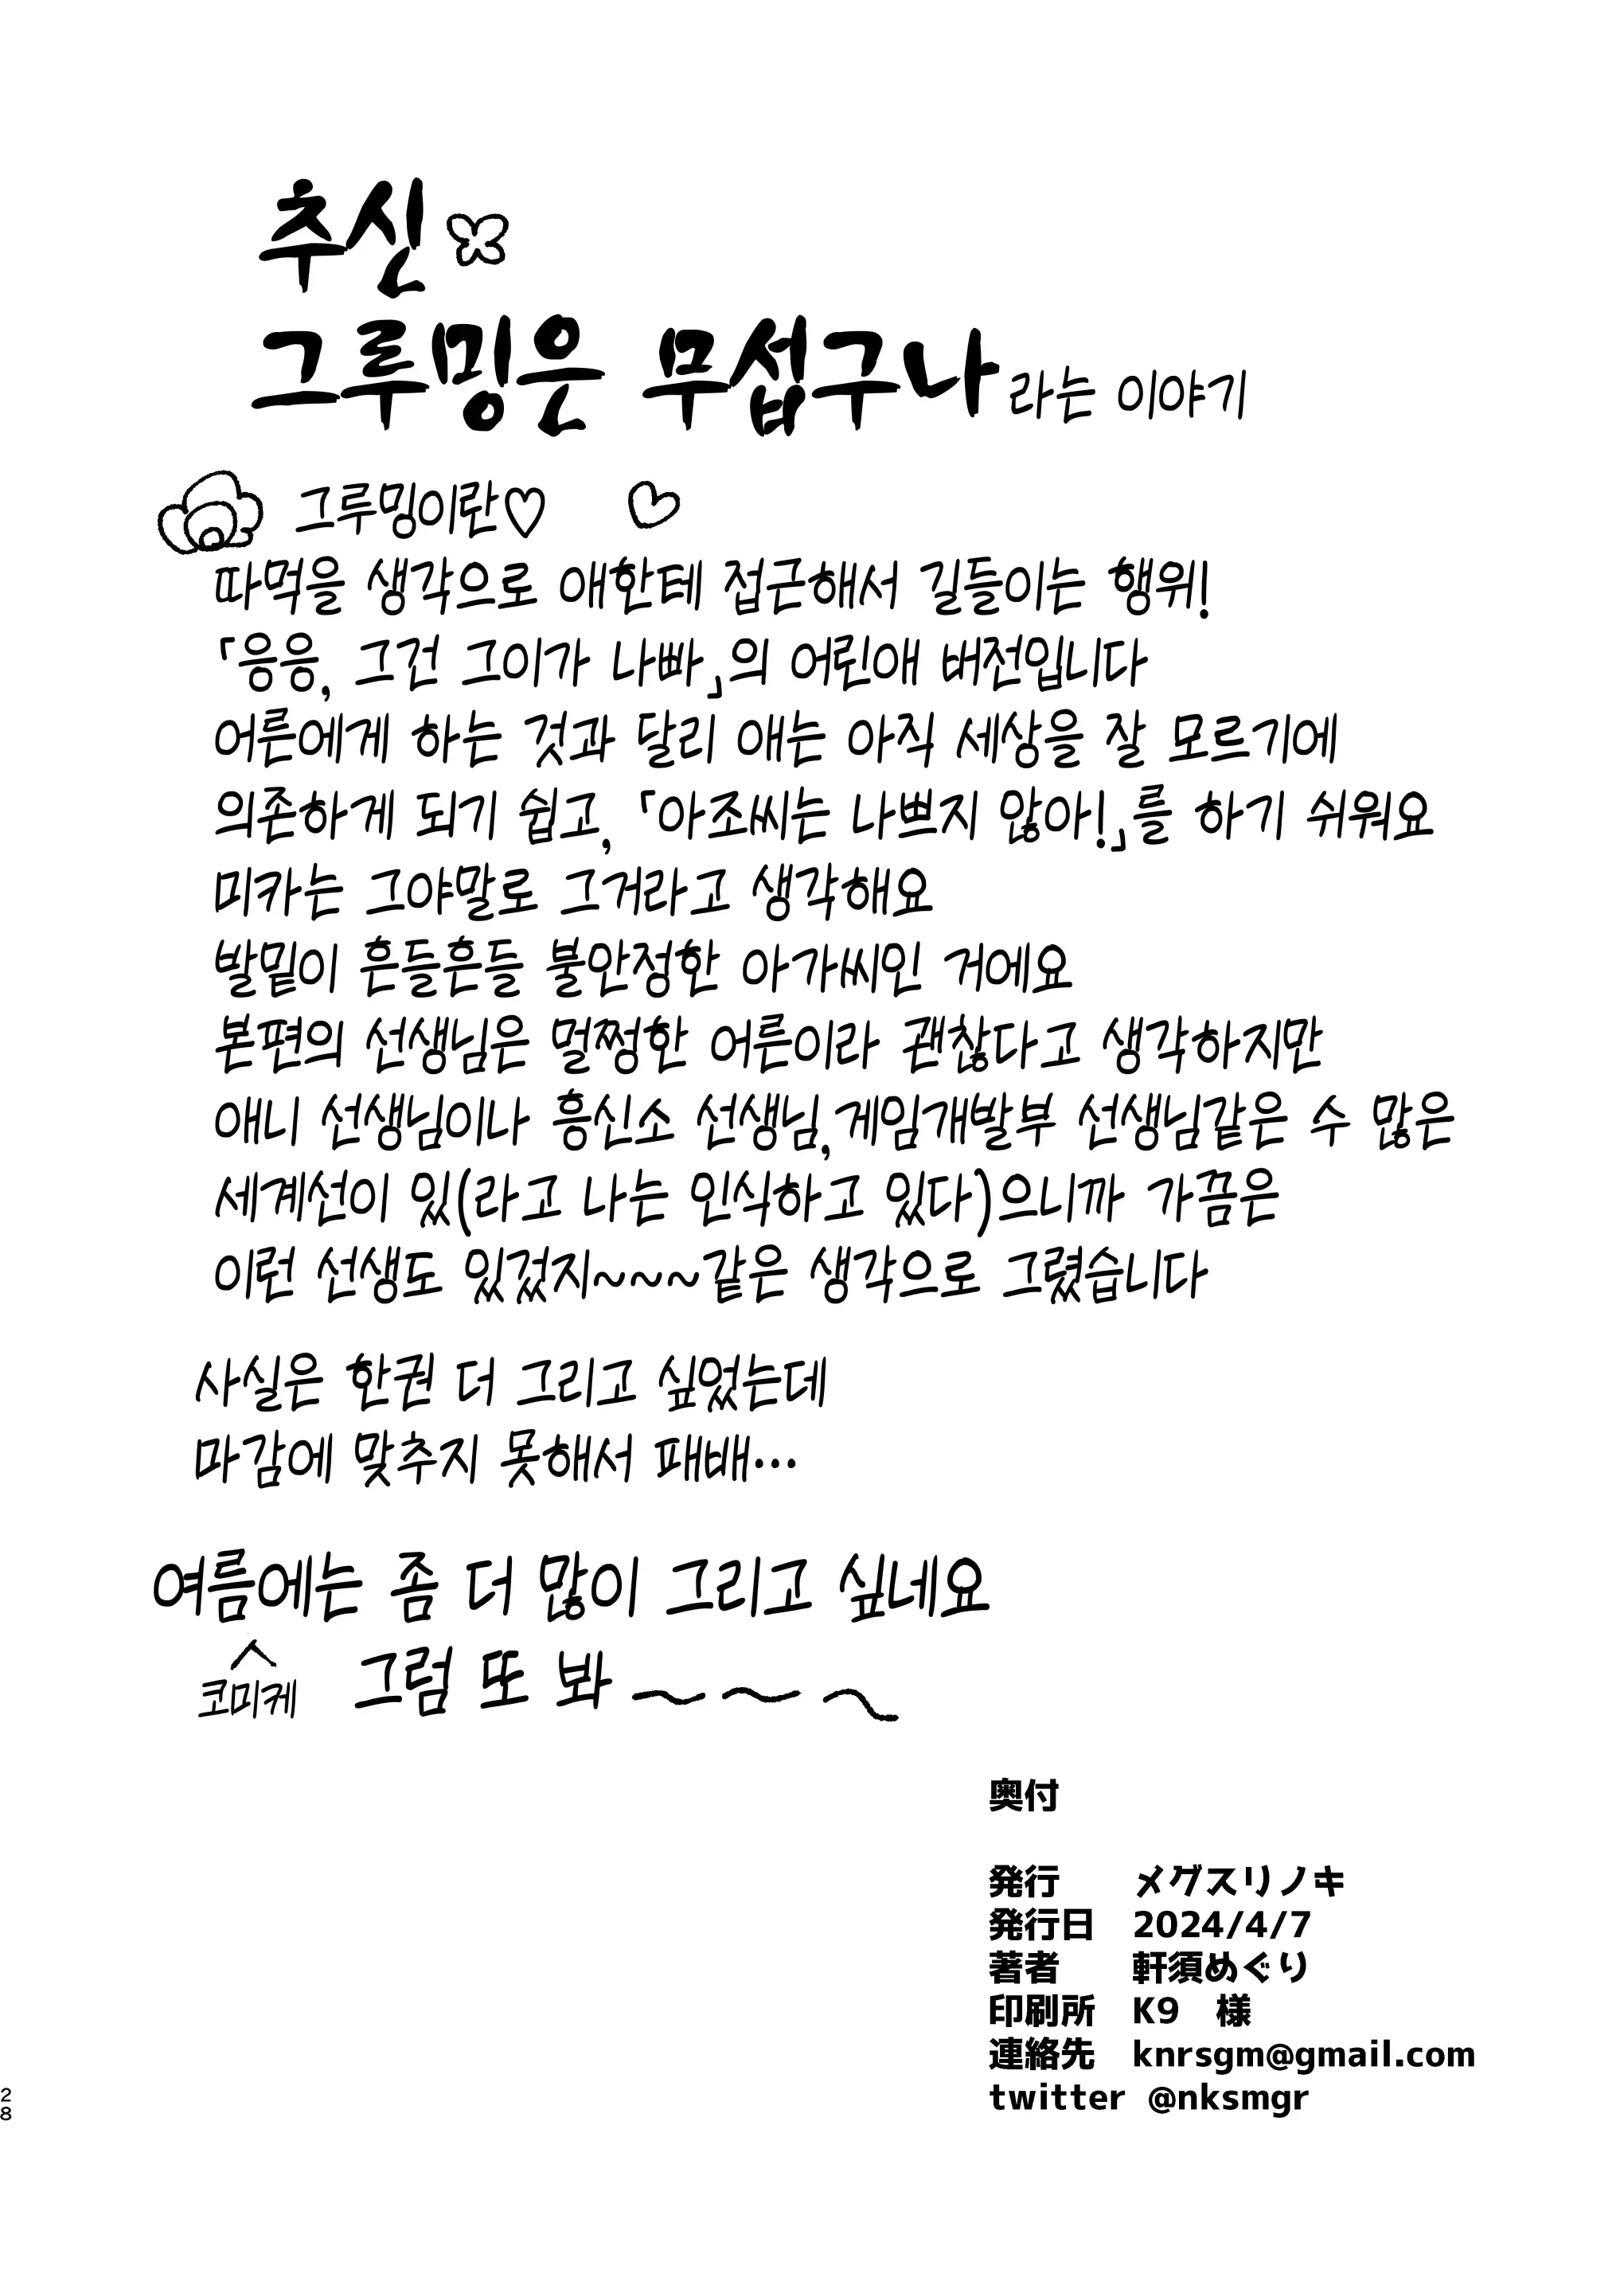 추신
그루밍은 무섭구나라는 이야기
그루밍이란♡
따먹을 생각으로 애한테 접근해서 길들이는 행위!
「응응, 그건 그이가 나빠」의 어린애 버전입니다
어른에게 하는 것과 달리 애는 아직 세상을 잘 모르기에
의존하게 되기 쉽고, 「아조씨는 나쁘지 않아!」를 하기 쉬워요
미카는 그야말로 그거라고 생각해요
발밑이 흔들흔들 불안정한 아가씨인 거에요
본편의 선생님은 멀쩡한 어른이라 괜찮다고 생각하지만
애니 선생님이나 흥신소 선생님,게임개발부 선생님같은 수 많은
세계선이 있(라고 나는 인식하고 있다)으니까 가끔은
이런 선생도 있겠지~~~같은 생각으로 그렸습니다
사실은 한권 더 그리고 싶었는데
마감에 맞추지 못해서 패배…
여름에는 좀 더 많이 그리고 싶네요
코미케
그럼 또 봐~~~
奥付
発行 メグスリノキ
発行日 2024/4/7
著者 軒須めぐり
印刷所 K9 様
連絡先 knrsgm@gmail.com
twitter @nksmgr
28